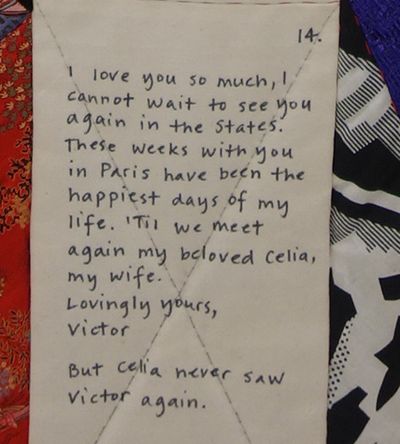 14.
I love you so much, I
cannot wait to see you
again in the States.
These weeks with you
in Paris have been the
happiest days of my
life. 'Til we meet
again my beloved Celia,
my wife.
Lovingly yours,
Victor
But Celia never saw
Victor again.